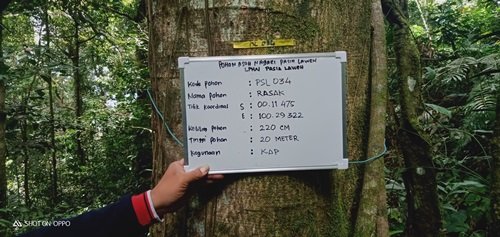 POHON ASUH NAGARI PASIA LAWEH
LPHN PASIA LAWEH
Kode pohon : PSL 034
Nama pohon : RASAK
Titik koordinat S : 00.11 475
E : 100.29 322
Keliling pohon : 220 CM
Tinggi pohon : 20 METER
Kegunaan : KAP
SHOT ON OPPO